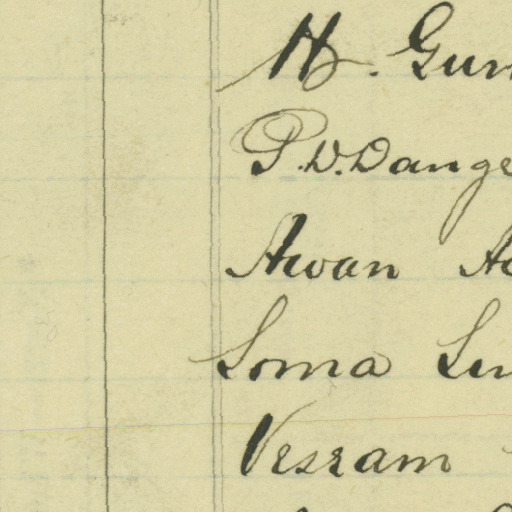 H. Gun
P. D. Dange
Awan
Soma
Vesram